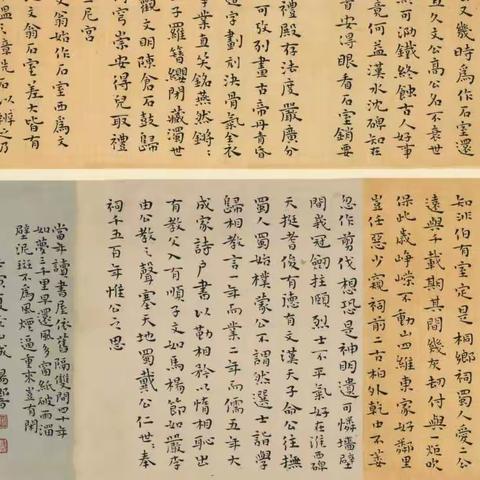 公又幾時爲作石室還
且久文公高公名不衰世
終可泐鐵終蝕古人好事
竟何益漢水沈碑知在
者安得眼看石室銷要
禮殿存法度嚴廣分
可攷列畫古帝丹青昏
造字劃剞決骨氣衰
事業直笑銘燕然鏘鏘
子羅簪纓閟藏濁世
觀文明陳倉石鼓歸
何官崇安得兒取禮
尼宮
文翁始作石室西爲文
文翁石室差大皆有
章先石以辨之乃
知沘伯有室定是桐鄉祠蜀人愛二公
遠與千載期其間幾灰劫付與一炬吹
保此歲崢嶸不動山四維東家好鄰里
豈任惡少窺祠前古柏外乾中不萎
忽作剪伐想恐是神明遺可憐墻壁
間峩冠劒拄頤烈士不平氣好在淮西碑
天挺耆俊有德有文漢天子命公往撫
蜀人蜀始樸蒙公不謂然選士詣學
歸相教言一年而業二年而儒五年大
成家詩戶書以勤相矜以惰相恥出
有教父入有順子文如馬楊節如嚴李
由公教之聲塞天地蜀戴公仁世世奉
祠千五百年惟公之思
當年讀書屋依舊隔雙閞四十年
如夢三千里早還風多窗紙破雨溜
壁泥斑不爲風煙逼重來豈有閞